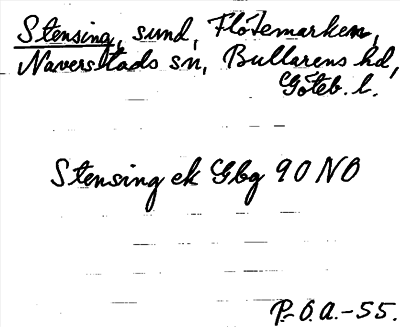 Stensing, sund, Flötemarken,
Naverstads sn, Bullarens hd,
Göteb. l.
Stensing ek Gbg 90 NO
P.-O.A.-55.